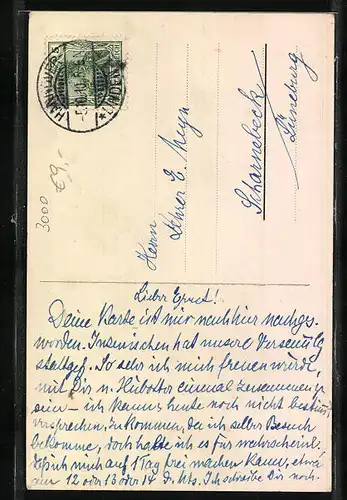 HANNOVER
5.10.10.
3000
€9,-
Herrn
Lehrer E. Meyn
Scharnebeck
b/ Lüneburg
Lieber Ernst!
Deine Karte ist mir nach hier nachges.
worden. Inzwischen hat unsere Versammlg
stattgef. So sehr ich mich freuen würde,
mit Dir u. einmal zusammen z.
sein – ich kann heute noch nicht bestimmt
versprechen, zu kommen, da ich selber Besuch
bekomme, doch halte ich es für wahrscheinl.
daß ich mich auf 1 Tag frei machen kann, etwa
am 12 oder 13 oder 14 d. Mts. Ich schreibe Dir noch.